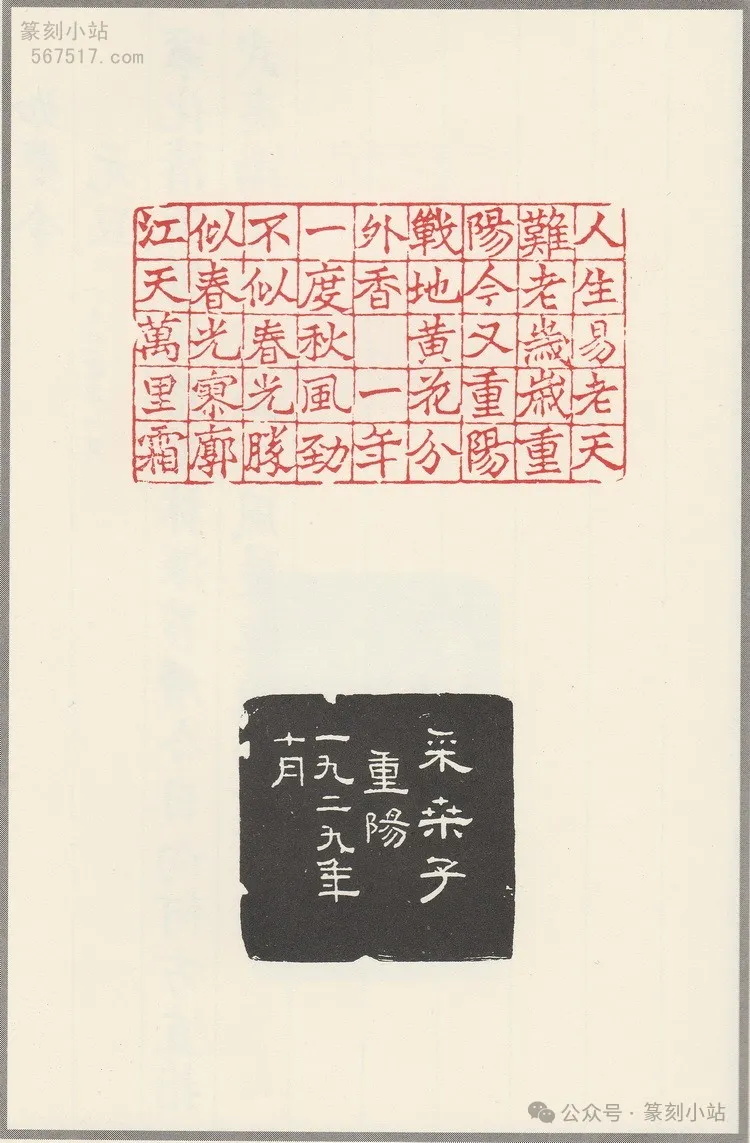 篆刻小站
567517.com
人生易老天
難老歲歲重
陽今又重陽
戰地黃花分
外香 一年
一度秋風勁
不似春光勝
似春光寥廓
江天萬里霜
采桒子
重陽
一九二九年
十月
公众号·篆刻小站